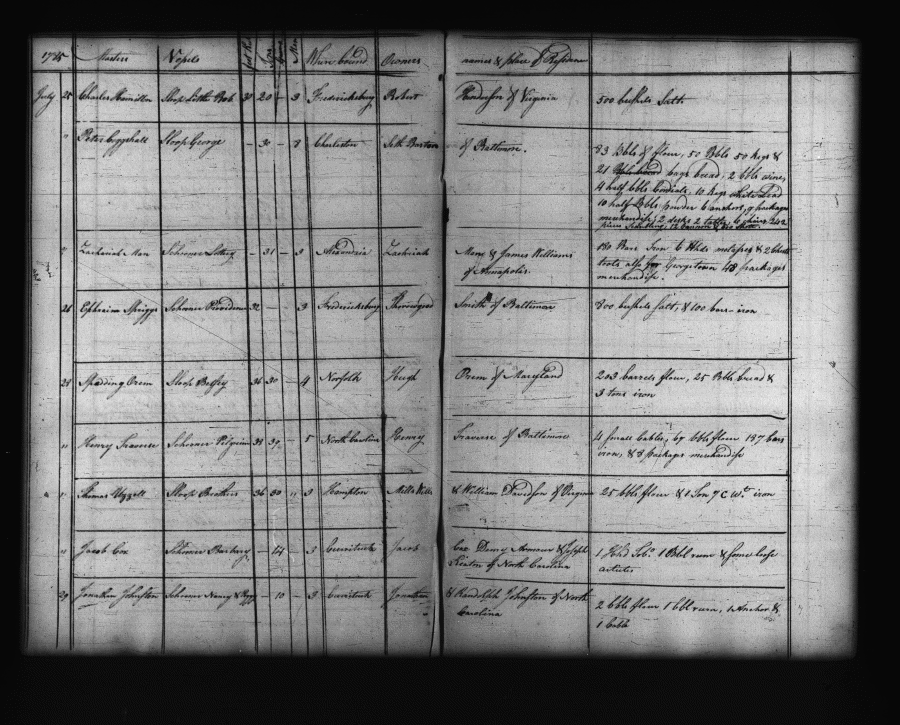 1785 Masters Vessels Tons Men Where bound Owners names & place of Residence
July 25 Charles Hamilton Sloop Little Bob 20 - 3 Fredericksburg Robert Henderson of Virginia 500 bushels Salt
" Peter Coggshall Sloop George - 30 - 3 Charleston Seth Barton of Baltimore. 83 bbls of flour, 50 Bbls 50 kegs &
21 bags bread, 2 bbls wine,
4 half bbls Cordials, 10 kegs white Lead
10 half Bbls powder 6 anchors, 9 packages
merchandise; 2 desks 2 tables, 6
" Zachariah Man Schooner - 31 - 3 Alexandria Zachariah Mann & James Williams 180 Bars Iron 6 Hhds molasses & 2 Chests
of Annapolis. tools also for Georgetown 48 packages
merchandise.
26 Ephraim Spriggs Schooner Providence 32 - - 3 Fredericksburg Thorowgood Smith of Baltimore 800 bushels Salt, & 100 bars iron
28 Spedding Orem Sloop Betsey 36 30 - 4 Norfolk Hugh Orem of Maryland 203 barrels flour, 25 Bbls bread &
3 tons iron
" Henry Travers Schooner Pilgrim 38 - 5 North Carolina Henry Travers of Baltimore 4 small Cables, 67 bbls flour 137 bars
iron, & 8 packages merchandise
" Thomas Uzzell Sloop Brothers 36 30 " 3 Hampton Mills Wills & William Davidson of Virginia 25 bbls flour & 1 Ton 7 C Wt. iron
" Jacob Cox Schooner Barbary - 14 - 3 Currituck Jacob Cox Demy Armour & Joseph 1 Hhd Tobo. 1 Bbl rum & some loose
of North Carolina articles
29 Jonathan Johnston Schooner Nancy & Peggy - 10 - 3 Currituck Jonathan & Randolph Johnston of North 2 bbls flour 1 bbl rum, 1 Anchor &
Carolina 1 Cable